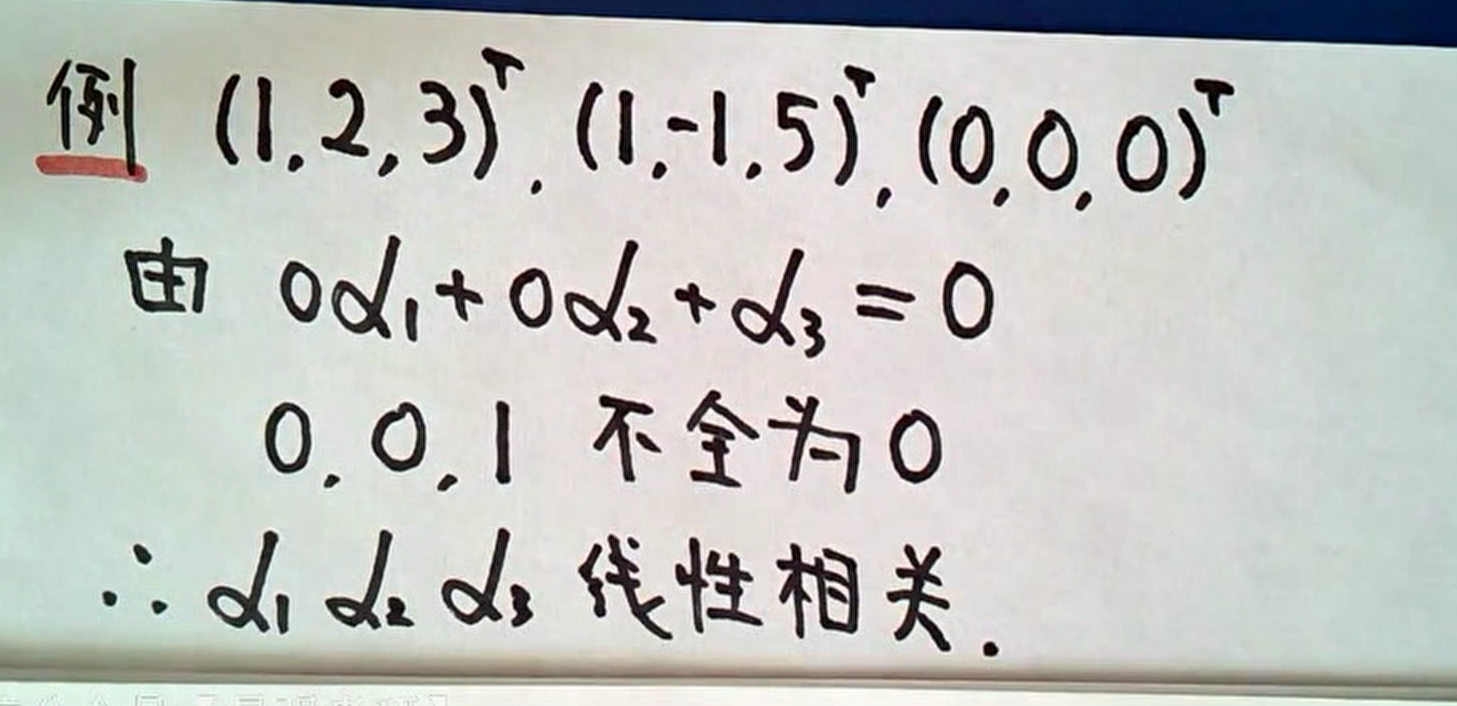 例 (1,2,3)ᵀ, (1,-1,5)ᵀ, (0,0,0)ᵀ
由 0α₁+0α₂+α₃=0
0,0,1 不全为0
∴ α₁ α₂ α₃ 线性相关.